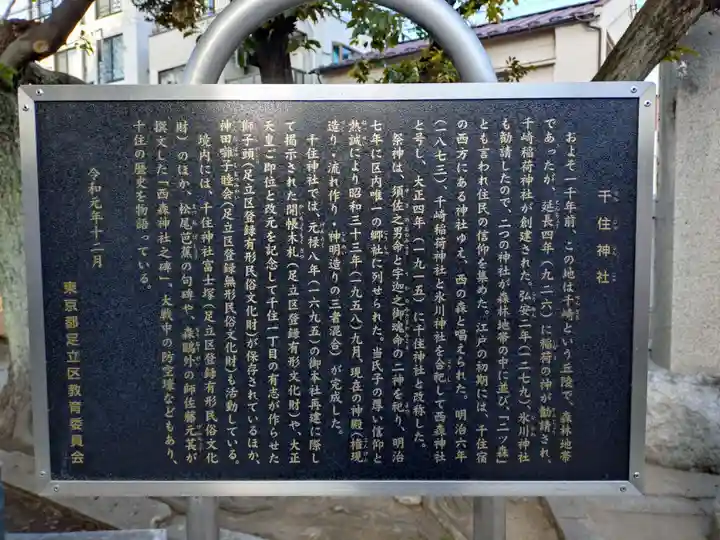 千住神社
およそ一千年前、この地は千崎という丘陵で、森林地帯
であったが、延長四年(九二六)に稲荷の神が勧請され、
千崎稲荷神社が創建された。弘安二年(一二七九)、氷川神社
も勧請したので、二つの神社が森林地帯の中に並び、二ツ森
とも言われ住民の信仰を集めた。江戸の初期には、千住宿
の西方にある神社ゆえ、西の森と唱えられた。明治六年
(一八七三)、千崎稲荷神社と氷川神社を合祀して西森神社
と号し、大正四年(一九一五)に千住神社と改称した。
祭神は、須佐之男命と宇迦之御魂命の二神を祀り、明治
七年に区内唯一の郷社に列せられた。当氏子の厚い信仰と
熱誠により昭和三十三年(一九五八)九月、現在の神殿(権現
造り・流れ作り・神明造りの三者混合)が完成した。
千住神社では、元禄八年(一六九五)の御本社再建に際し
て掲示された開帳木札(足立区登録有形民俗文化財)や、大正
天皇ご即位と改元を記念して千住一丁目の有志が作らせた
獅子頭(足立区登録有形民俗文化財)が保存されているほか、
神田囃子睦会(足立区登録無形民俗文化財)も活動している。
境内には、千住神社富士塚(足立区登録有形民俗文化
財)のほか、松尾芭蕉の句碑や、森鷗外の師佐藤元萇が
撰文した「西森神社之碑」、大戦中の防空壕などもあり、
千住の歴史を物語っている。
令和元年十二月
東京都足立区教育委員会